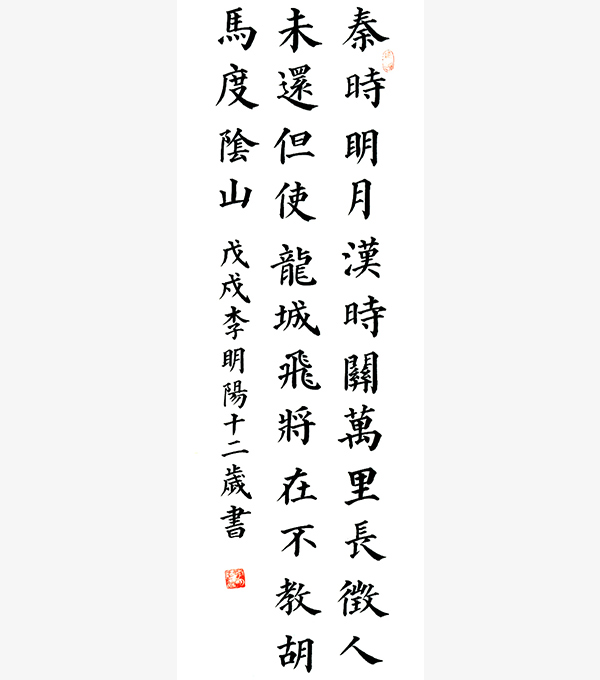 秦時明月漢時關萬里長徵人
未還但使龍城飛將在不教胡
馬度陰山
戊戌李明陽十二歲書